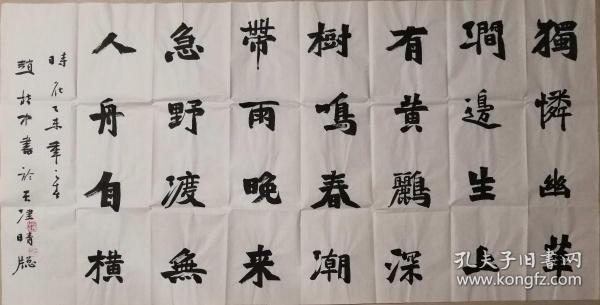 獨憐幽草
澗邊生上
有黄鸝深
樹鳴春潮
帶雨晚来
急野渡無
人舟自横
時在乙未年之春
趙 書於天津晴牕
孔夫子旧书网
www.kongfz.com